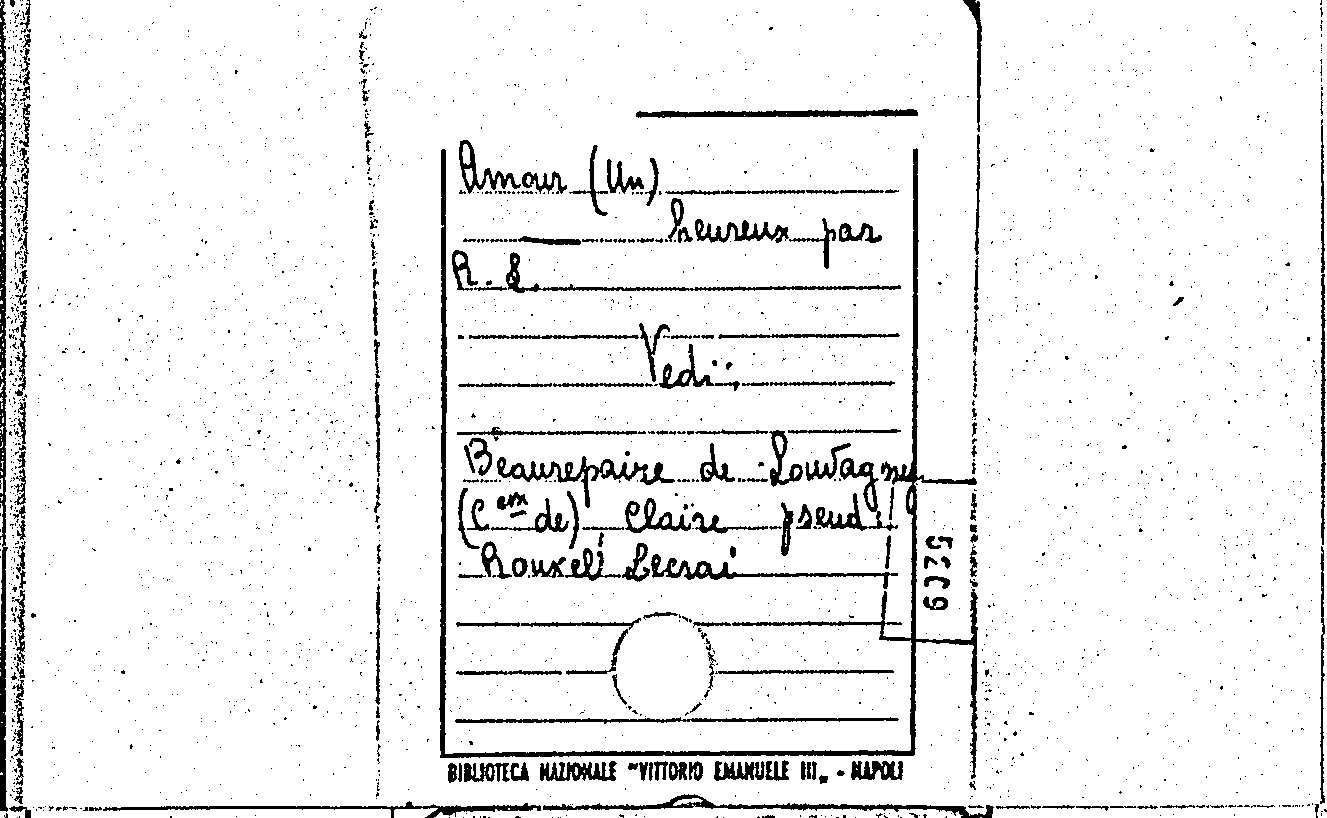 Amour (Un)
heureux par
R. L.
Vedi:
Beaurepaire de Louvagny
(C.em de), Claire pseud:
Rouxel Lecrai
5209
BIBLIOTECA NAZIONALE "VITTORIO EMANUELE III„ - NAPOLI